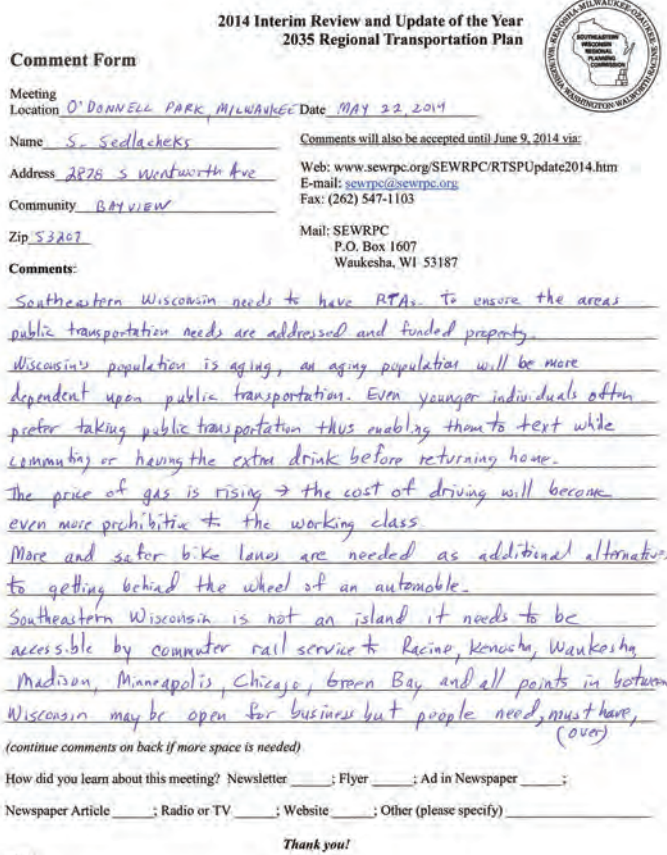 2014 Interim Review and Update of the Year
2035 Regional Transportation Plan
KENOSHA·MILWAUKEE·OZAUKEE·RACINE·WALWORTH·WASHINGTON·WAUKESHA
SOUTHEASTERN
WISCONSIN
REGIONAL
PLANNING
COMMISSION
Comment Form
Meeting
Location O'DONNELL PARK, MILWAUKEE Date MAY 22, 2014
Name S. Sedlacheks
Comments will also be accepted until June 9, 2014 via:
Address 2878 S Wentworth Ave
Web: www.sewrpc.org/SEWRPC/RTSPUpdate2014.htm
E-mail: sewrpc@sewrpc.org
Community BAYVIEW
Fax: (262) 547-1103
Zip 53207
Mail: SEWRPC
P.O. Box 1607
Waukesha, WI 53187
Comments:
Southeastern Wisconsin needs to have RTAs. To ensure the areas
public transportation needs are addressed and funded property.
Wisconsin's population is aging, an aging population will be more
dependent upon public transportation. Even younger individuals often
prefer taking public transportation thus enabling them to text while
commuting or having the extra drink before returning home.
The price of gas is rising → the cost of driving will become
even more prohibitive to the working class
More and safer bike lanes are needed as additional alternatives
to getting behind the wheel of an automoble.
Southeastern Wisconsin is not an island it needs to be
accessible by commuter rail service to Racine, Kenosha, Waukesha
Madison, Minneapolis, Chicago, Green Bay and all points in between
Wisconsin may be open for business but people need, must have,
(over)
(continue comments on back if more space is needed)
How did you learn about this meeting? Newsletter _____; Flyer _____; Ad in Newspaper _____;
Newspaper Article _____; Radio or TV _____; Website _____; Other (please specify) _____
Thank you!